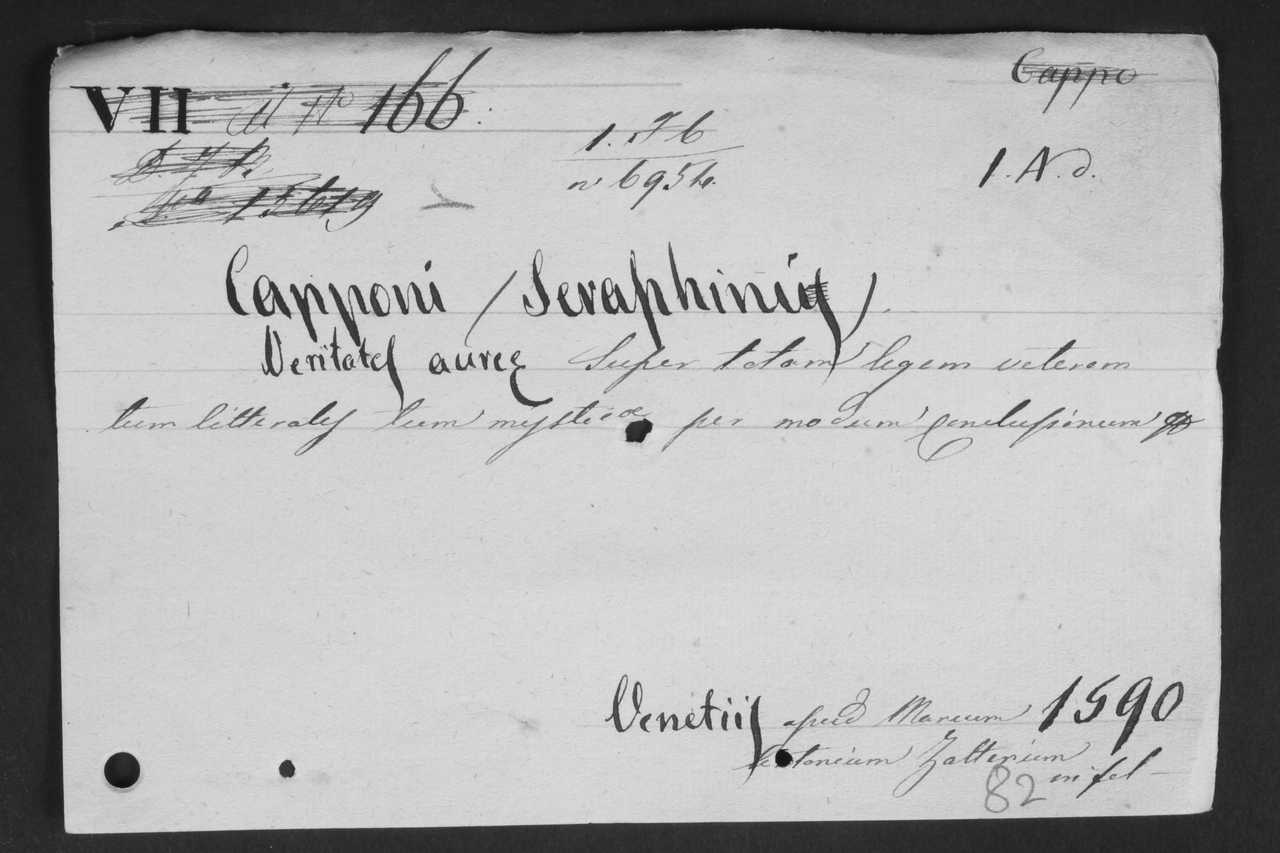 VII N° 166.
Cappo
1. F 6
n° 6954.
1. A. d.
D. 7 B.
N° 15619
Capponi (Seraphini)
Veritates aureę Super totam legem veterem
tum litterales tum mysticæ per modum Conclusionum
Venetiis apud Marcum 1590
Antonium Zalterium
in fol
82